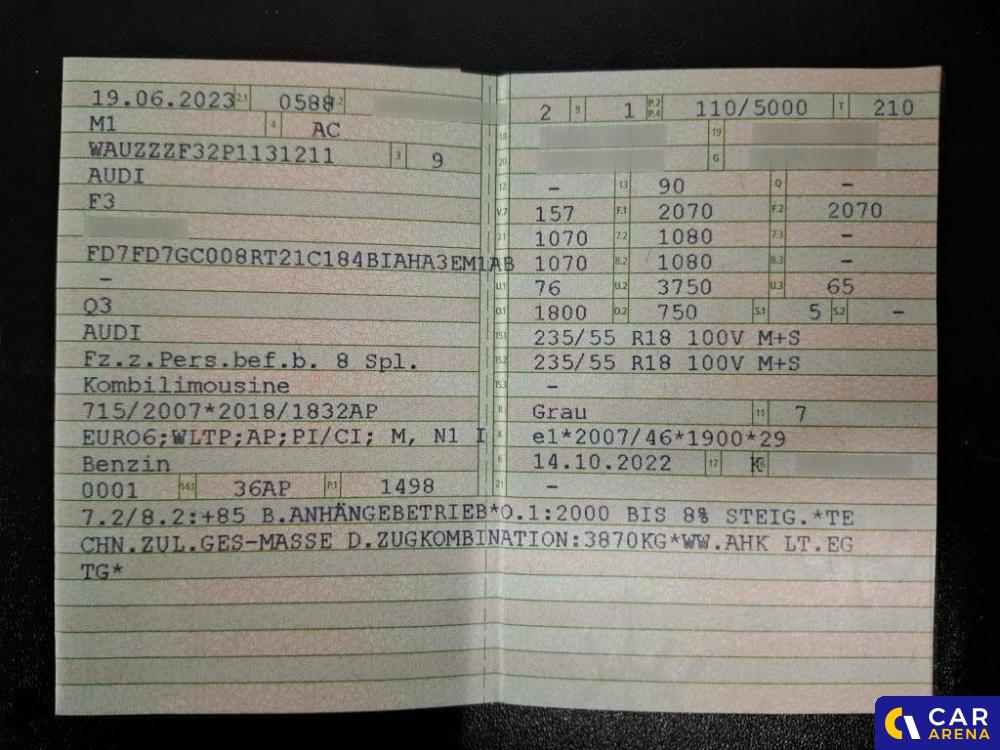 19.06.2023 2.1 0588 2.2
M1 4 AC
WAUZZZF32P1131211 3 9
AUDI
F3
FD7FD7GC008RT21C184BIAHA3EM1AB
–
Q3
AUDI
Fz.z.Pers.bef.b. 8 Spl.
Kombilimousine
715/2007*2018/1832AP
EURO6;WLTP;AP;PI/CI; M, N1 I
Benzin
0001 14.1 36AP P.1 1498
2 9 1 P.2 P.4 110/5000 T 210
18 19
20 G
12 – 13 90 Q –
V.7 157 F.1 2070 F.2 2070
7.1 1070 7.2 1080 7.3 –
8.1 1070 8.2 1080 8.3 –
U.1 76 U.2 3750 U.3 65
O.1 1800 O.2 750 S.1 5 S.2 –
15.1 235/55 R18 100V M+S
15.2 235/55 R18 100V M+S
15.3 –
R Grau 11 7
K e1*2007/46*1900*29
6 14.10.2022 17 K 16
21 –
7.2/8.2:+85 B.ANHÄNGEBETRIEB*O.1:2000 BIS 8% STEIG.*TE
CHN.ZUL.GES-MASSE D.ZUGKOMBINATION:3870KG*WW.AHK LT.EG
TG*
CAR
ARENA